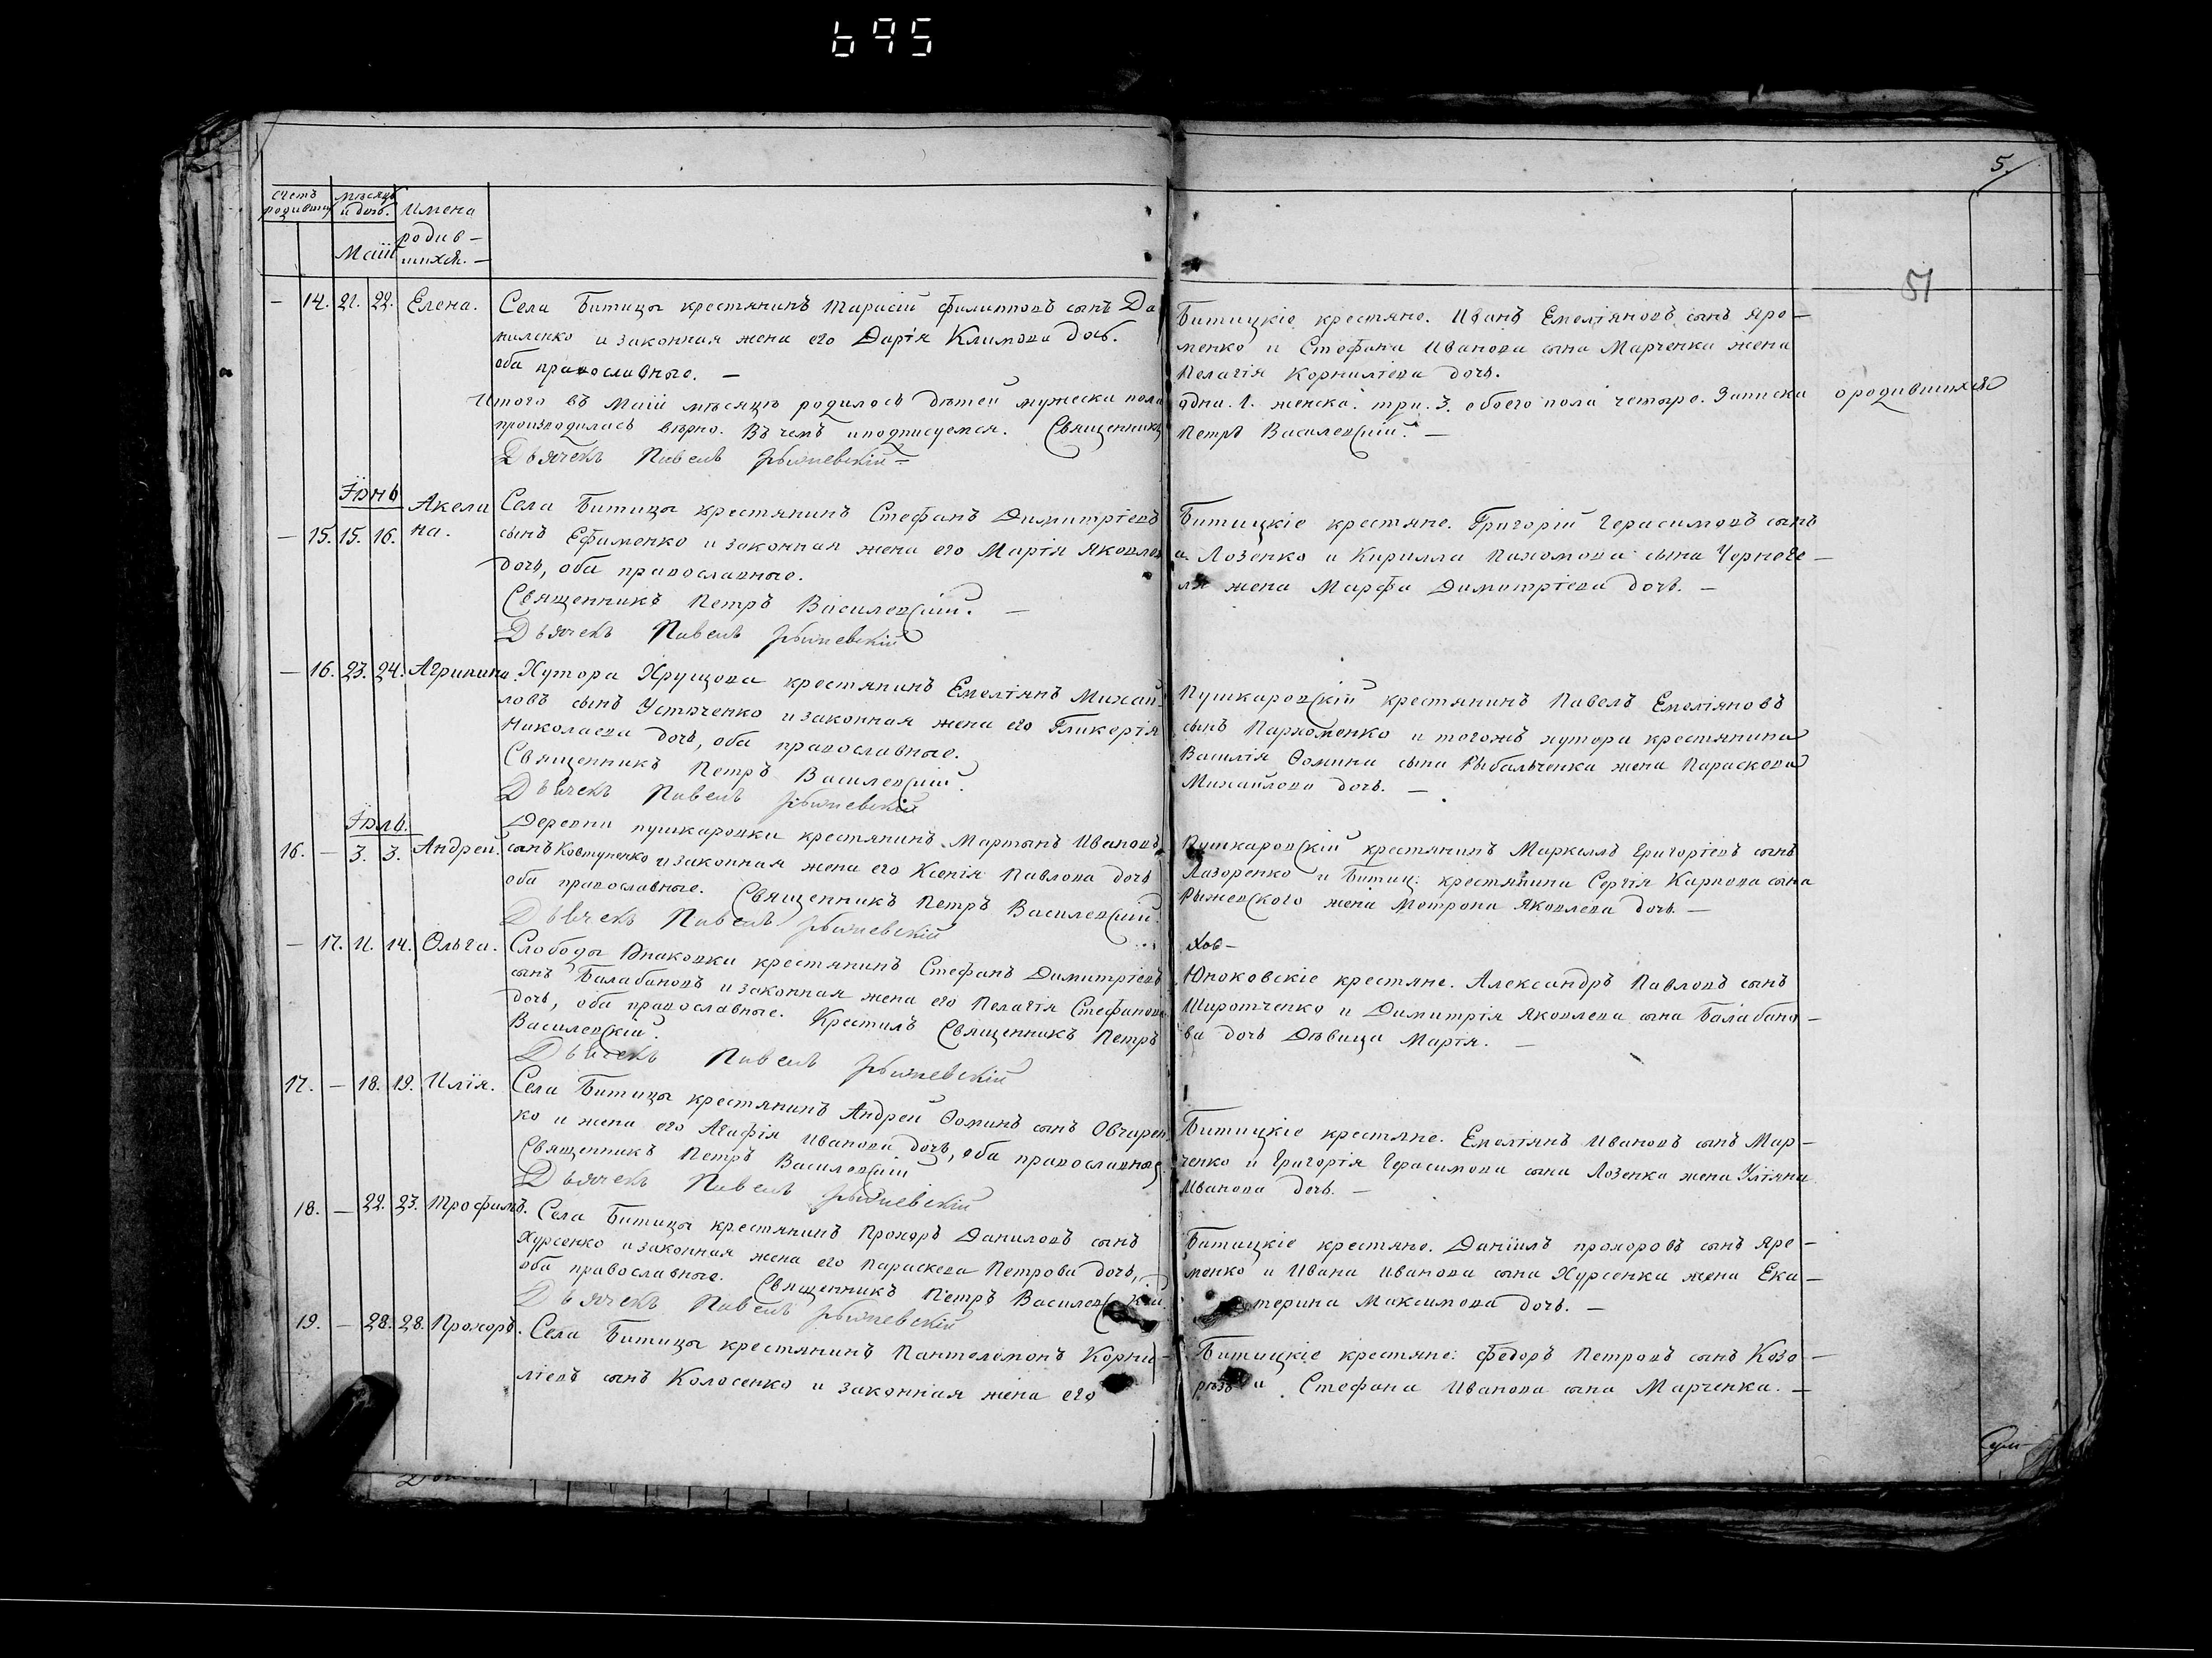 695
5.
51
Счетъ родивших
Мѣсяцъ и день.
Маій
Имена родив-
шихся. -
- 14. 21. 22. Елена. Села Битицы крестянинъ Тарасій Филиповъ сынъ Да
ниленко и законная жена его Дарія Климова дочь.
оба православные. -
Битицкіе крестяне. Иванъ Емеліяновъ сынъ Яре-
менко и Стефана Иванова сына Марченка жена
Пелагія Корниліева дочь.
Итого въ Маій мѣсяцѣ родилось дѣтей мужеска пола одна. 1. женска. три. 3. обоего пола четыре. Записка о родившихся
производилась вѣрно. Въ чемъ и подписуемся. Священникъ Петръ Василевскій. -
Дьячекъ Павелъ Рыжевскій
Іюнь
- 15. 15. 16. Акели
на.
Села Битицы крестянинъ Стефанъ Димитріевъ
сынъ Ефименко и законная жена его Марія Яковлев
дочь, оба православные.
Священникъ Петръ Василевскій. -
Дьячекъ Павелъ Рыжевскій
Битицкіе крестяне. Григорій Герасимовъ сынъ
Лозенко и Кирилла Пахомова сына Чернеге-
ля жена Марфа Димитріева дочь. -
- 16. 23. 24. Агрипина. Хутора Хрущова крестянинъ Емеліянъ Михай-
ловъ сынъ Устиченко и законная жена его Гликерія
Николаева дочь, оба православные.
Священникъ Петръ Василевскій.
Дьячекъ Павелъ Рыжевскій
Пушкаровскій крестянинъ Павелъ Емеліяновъ
сынъ Пархоменко и тогожъ хутора крестянина
Василія Ѳомина сына Рыбальченка жена Параскева
Михайлова дочь. -
Іюль.
16. - 3. 3. Андрей. Деревни пушкаровки крестянинъ Мартынъ Ивановъ
сынъ Ковтуненко и законная жена его Ксенія Павлова дочь
оба православные. Священникъ Петръ Василевскій.
Дьячекъ Павелъ Рыжевскій
Пушкаровскій крестянинъ Маркеллъ Григоріевъ сынъ
Лазоренко и Битиц: крестянина Сергія Карпова сына
Рыжевского жена Мотрона Яковлева дочь. -
- 17. 11. 14. Ольга. Слободы Юнаковки крестянинъ Стефанъ Димитріевъ
сынъ Балабановъ и законная жена его Пелагія Стефанова
дочь, оба православные. Крестилъ Священникъ Петръ
Василевскій.
Дьячекъ Павелъ Рыжевскій
Юноковскіе крестяне. Александръ Павловъ сынъ
Широтченко и Димитрія Яковлева сына Балабано-
ва дочь Дѣвица Марія. -
17. - 18. 19. Илія. Села Битицы крестянинъ Андрей Ѳоминъ сынъ Овчарен
ко и жена его Агафія Иванова дочь, оба православные.
Священникъ Петръ Василевскій
Дьячекъ Павелъ Рыжевскій
Битицкіе крестяне. Емеліянъ Ивановъ сынъ Мар-
ченко и Григорія Герасимова сына Лозенка жена Уліяна
Иванова дочь. -
18. - 22. 23. Трофимъ. Села Битицы крестянинъ Прохоръ Даниловъ сынъ
Хурсенко и законная жена его Параскева Петрова дочь,
оба православные. Священникъ Петръ Василевскій.
Дьячекъ Павелъ Рыжевскій
Битицкіе крестяне. Даніилъ прохоровъ сынъ Яре-
менко и Ивана Иванова сына Хурсенка жена Ека-
терина Максимова дочь. -
19. - 28. 28. Прохоръ. Села Битицы крестянинъ Пантелемонъ Корни-
ліевъ сынъ Колосенко и законная жена его
Битицкіе крестяне: Федоръ Петровъ сынъ Козо-
рѣзъ и Стефана Иванова сына Марченка. -